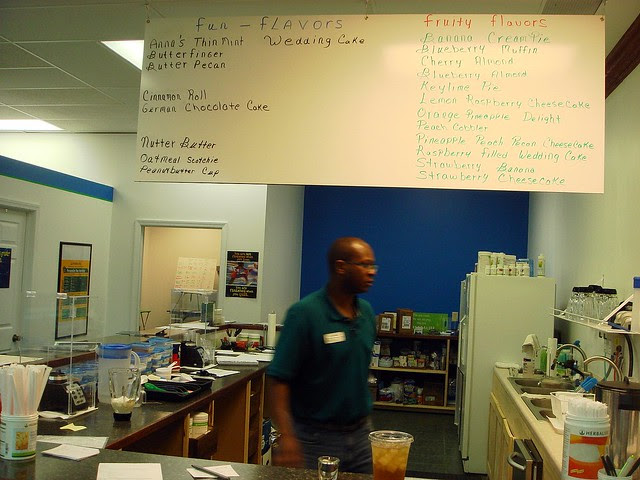 fun - flavors
Anna's Thin Mint Wedding Cake
Butterfinger
Butter Pecan
Cinnamon Roll
German Chocolate Cake
Nutter Butter
Oatmeal Scotchie
Peanutbutter Cup
fruity flavors
Banana Cream Pie
Blueberry Muffin
Cherry Almond
Blueberry Almond
Keylime Pie
Lemon Raspberry Cheesecake
Orange Pineapple Delight
Peach Cobbler
Pineapple Peach Pecan Cheesecake
Raspberry filled Wedding Cake
Strawberry Banana
Strawberry Cheesecake
HERBALIFE